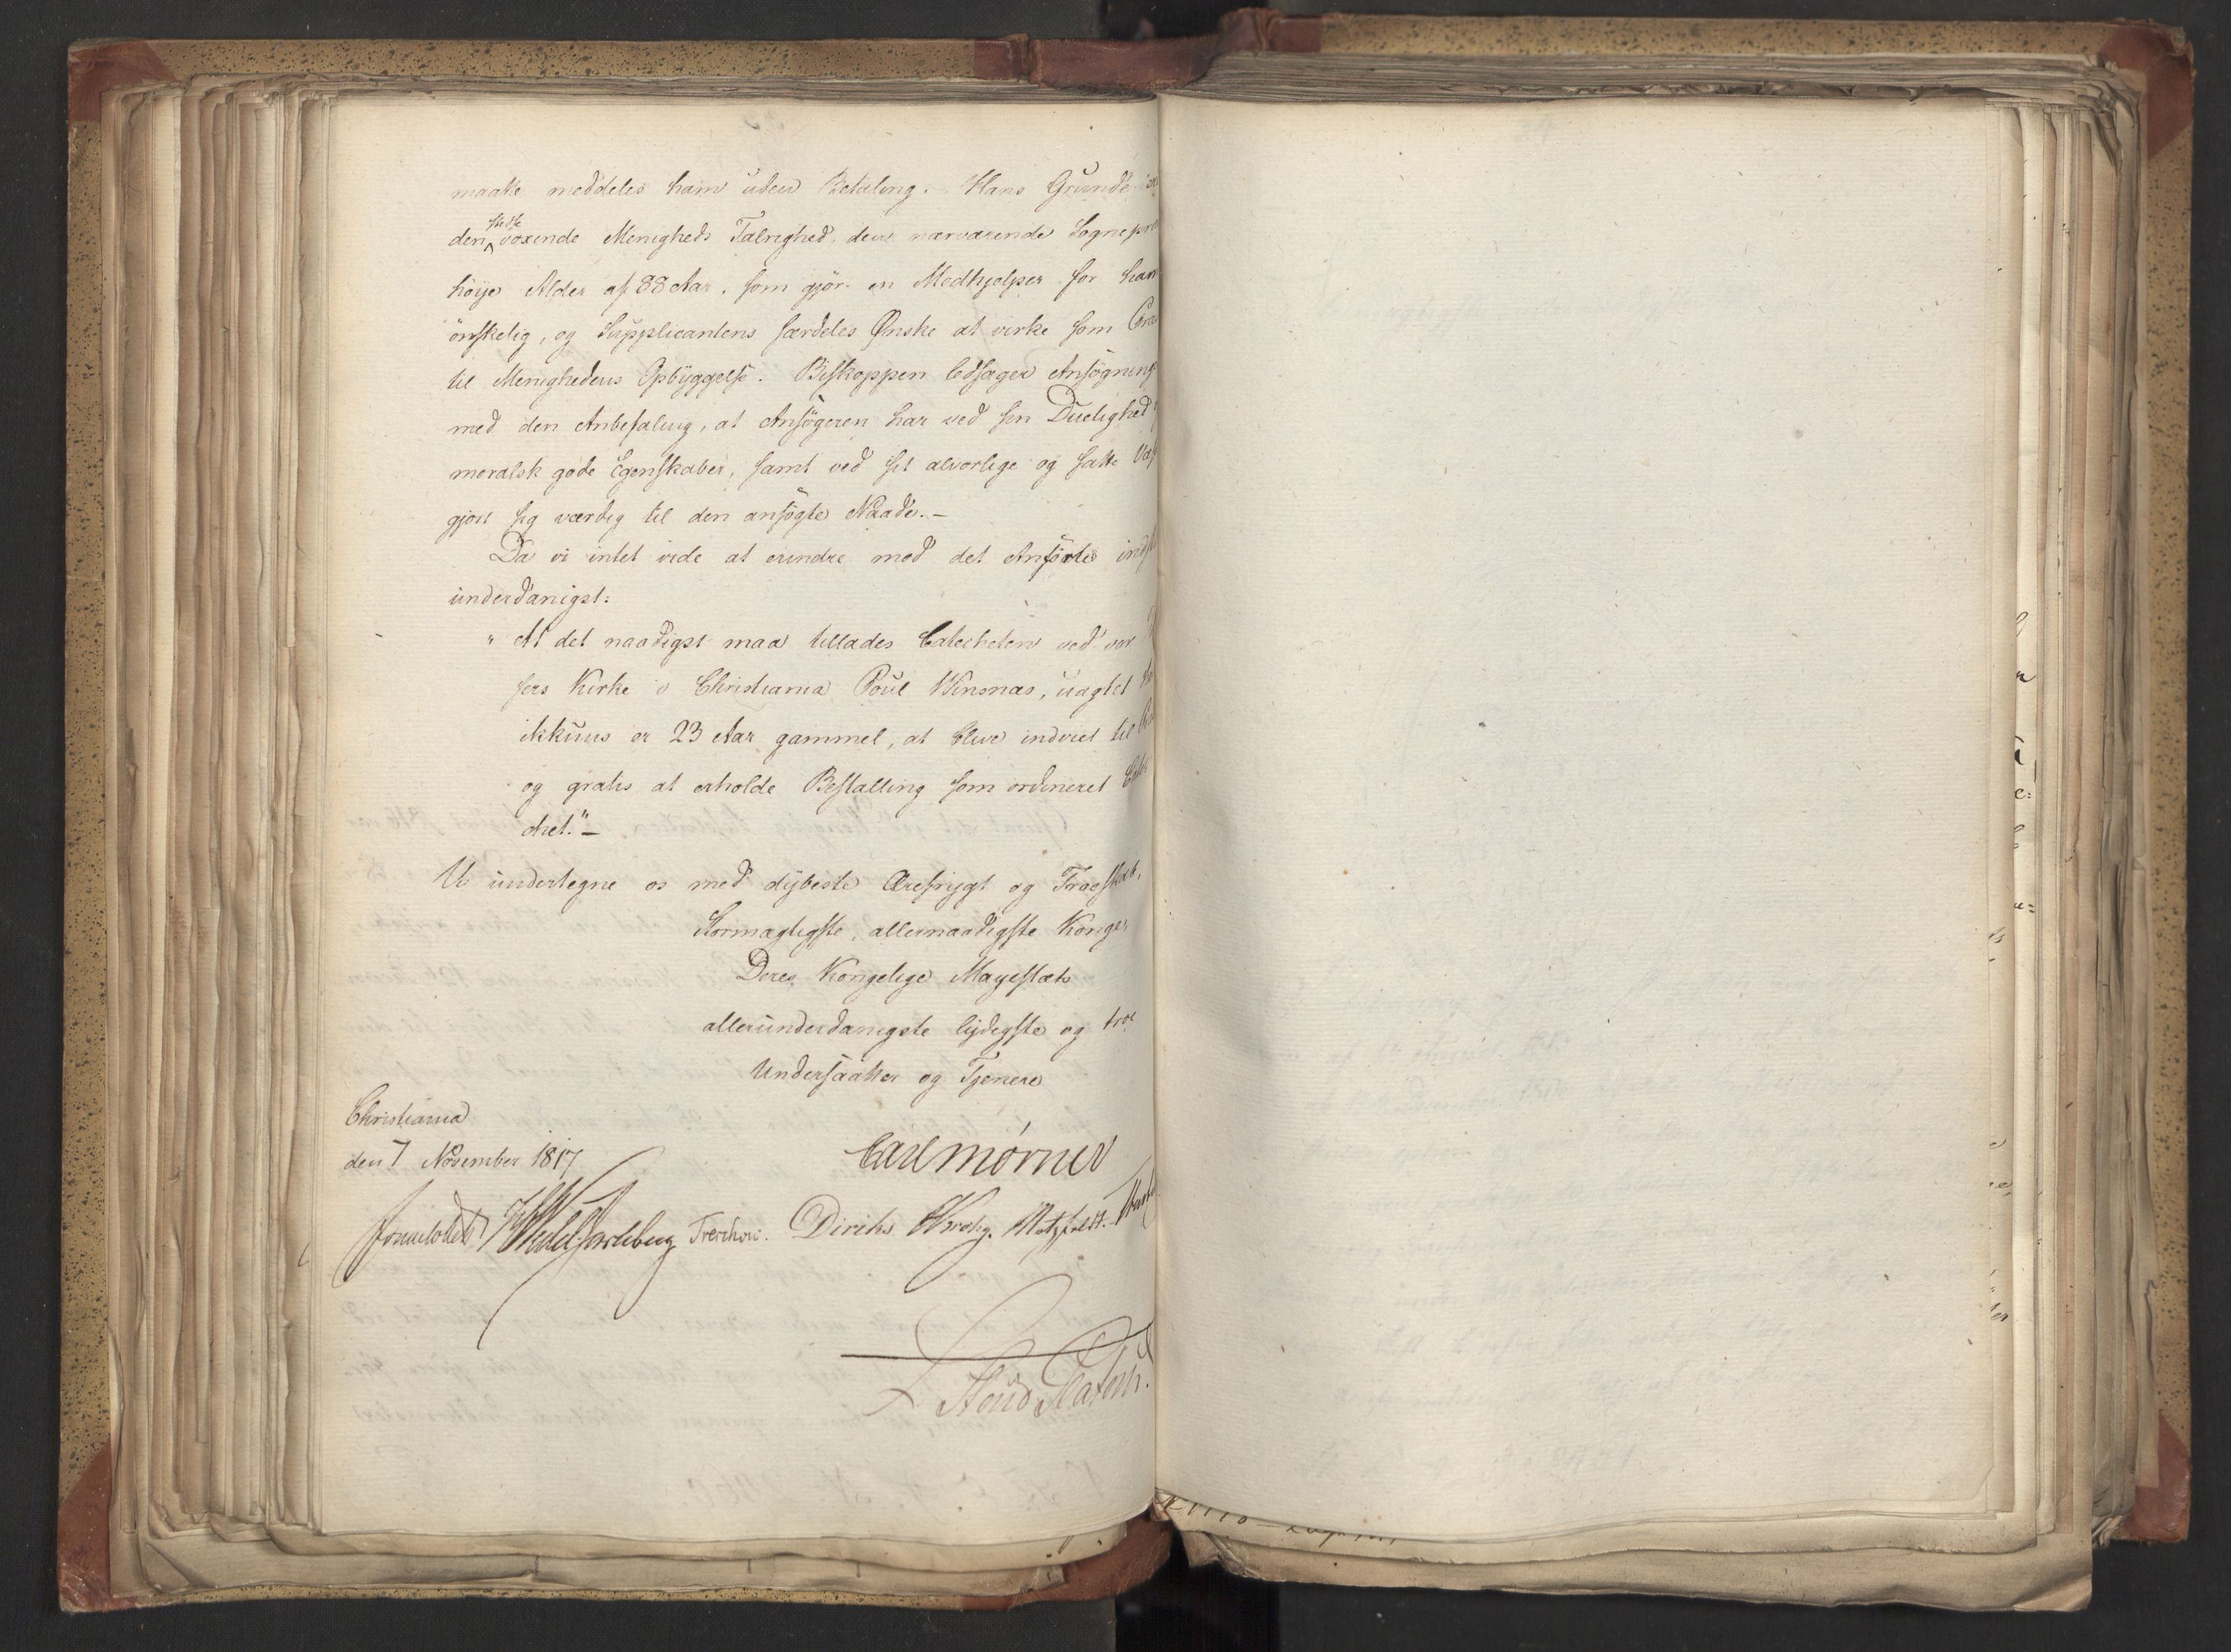 maatte meddeles ham uden Betaling. Hans Grunde
den stedse voxende Menigheds Talrighed, den nærværende Sognepræ
höije Alder af 88 Aar, som gjör en Medhjelper for ham
önskelig, og Supplicantens særdeles Ønske at virke som
til Menighedens Opbyggelse. Biskoppen ledsager Ansögning
med den Anbefaling, at Ansögeren har ved sin Duelighed
moralsk gode Egenskaber, samt ved sit alvorlige og satte Væs
gjort sig værdig til den ansögte Naade.—
Da vi intet vide at erindre mod det Anførte inds
underdanigst:
" At det naadigst maa tillades Catecheten ved vor
sers Kirke i Christiania Poul Winsnæs, uagtet
ikkuns er 23 Aar gammel, at blive indviet til
og gratis at erholde Bestalling som ordineret Cate
chet."—
Vi undertegne os med dybeste Ærefrygt og Troeskab,
Stormægtigste, allernaadigste Konge,
Deres Kongelige Mayestæts
allerunderdanigste lydigste og troe
Undersaatter og Tjenere
Christiania
den 7 November 1817
Carl Mörner
Sommerfeldt HWedel Jarlsberg Treschow. Diriks Krohg. Motzfeldt.